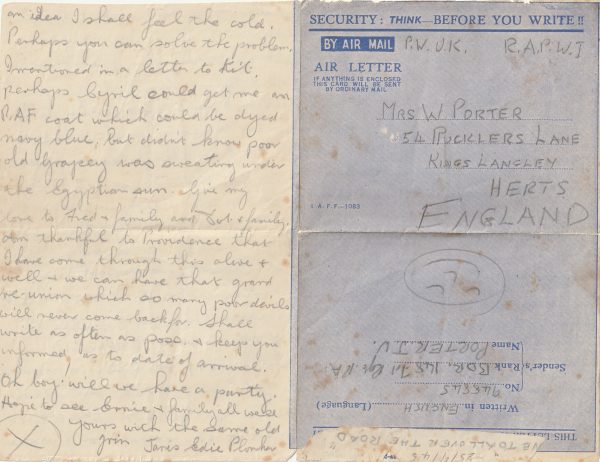 an idea I shall feel the cold.
Perhaps you can solve the problem.
I mentioned in a letter to Kit,
perhaps Cyril could get me an
RAF coat which could be dyed
navy blue, but didn't know poor
old was sweating under
the Egyptian sun. Give my
love to Fred & family and Dot & family.
am thankful to Providence that
I have come through this alive &
well & we can have that grand
re-union which so many poor devils
will never come back for. Shall
write as often as poss. & keep you
informed, as to date of arrival.
Oh boy. will we have a party.
Hope to see Ernie & family all well
Yours with the same old
grin
X
SECURITY: THINK—BEFORE YOU WRITE!!
BY AIR MAIL P.W.U.K. R.A.P.W.I
AIR LETTER
IF ANYTHING IS ENCLOSED
THIS CARD WILL BE SENT
BY ORDINARY MAIL
MRS W PORTER
54 RUCKLERS LANE
KINGS LANGLEY
HERTS
ENGLAND
I.A.F.F.—1083
THIS LETTER
Written in ENGLISH (Language)
No. 948845
Sender's Rank BDR. 148 Fd Rgt. RA.
Name PORTER J.V.
ALL OVER THE ROAD"